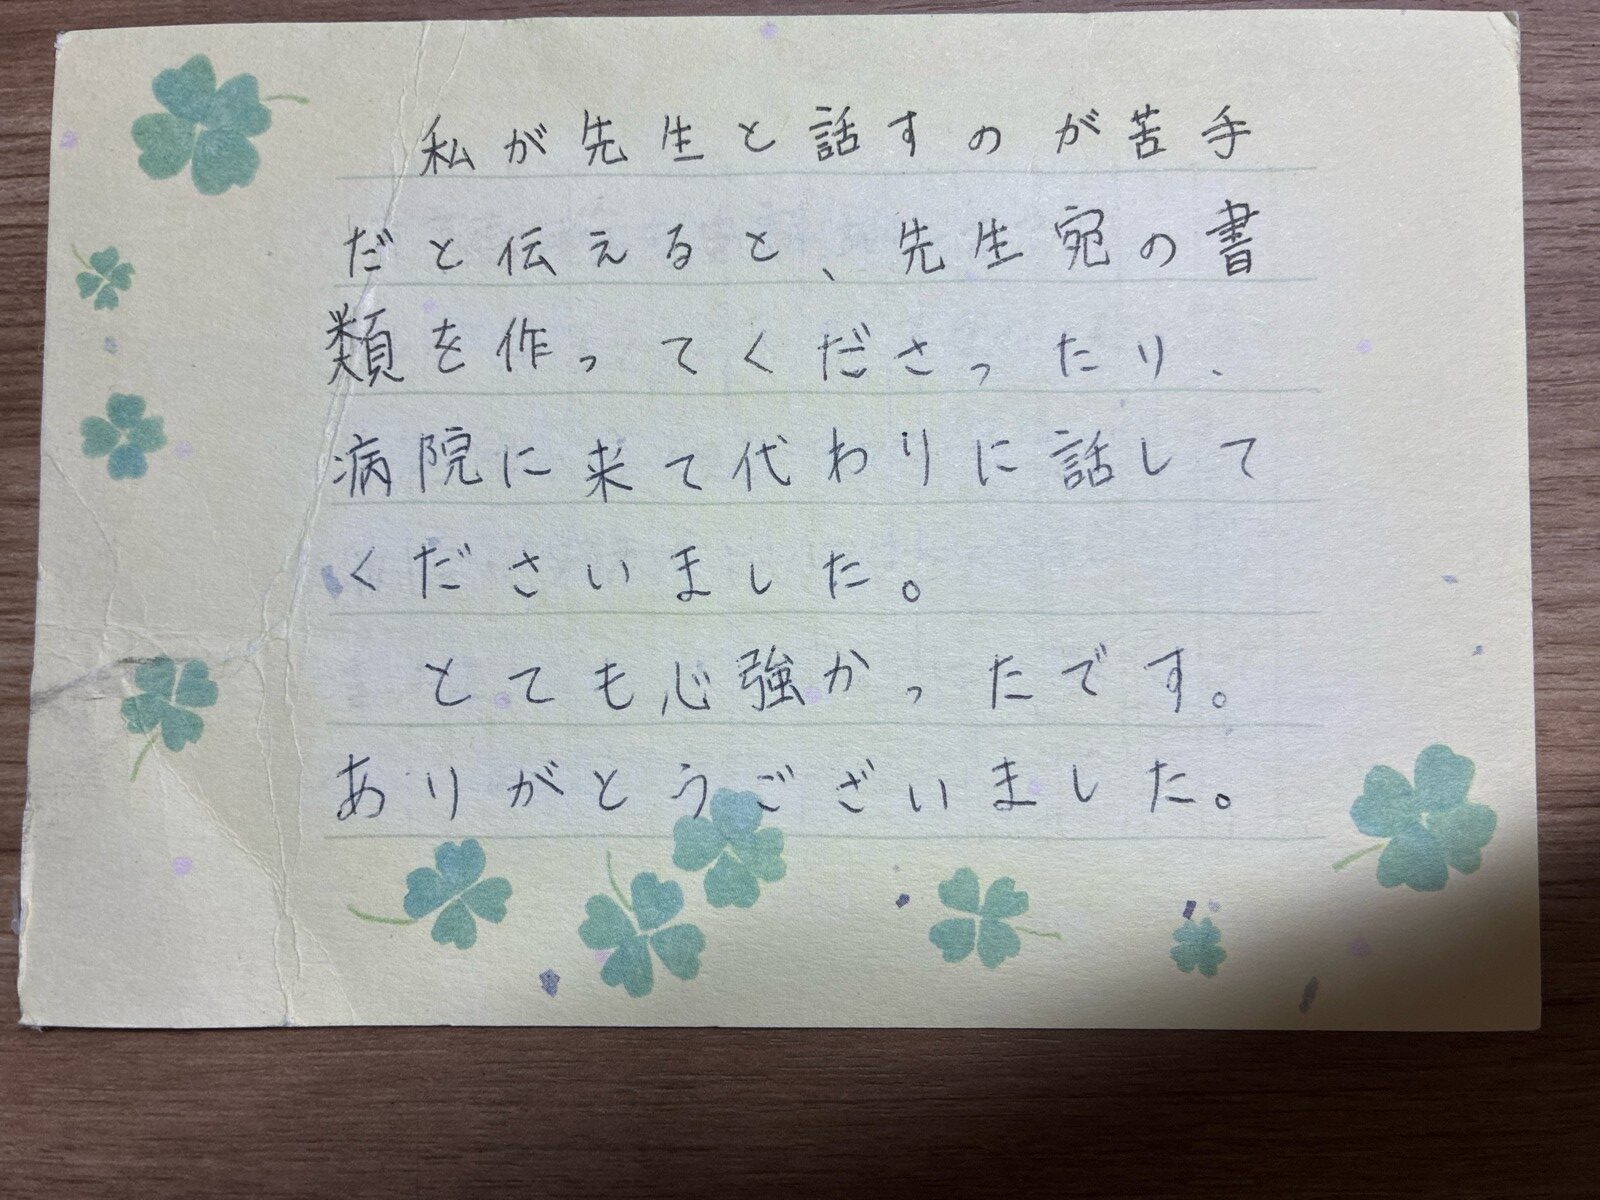 私が先生と話すのが苦手
だと伝えると、先生宛の書
類を作ってくださったり、
病院に来て代わりに話して
くださいました。
とても心強かったです。
ありがとうございました。